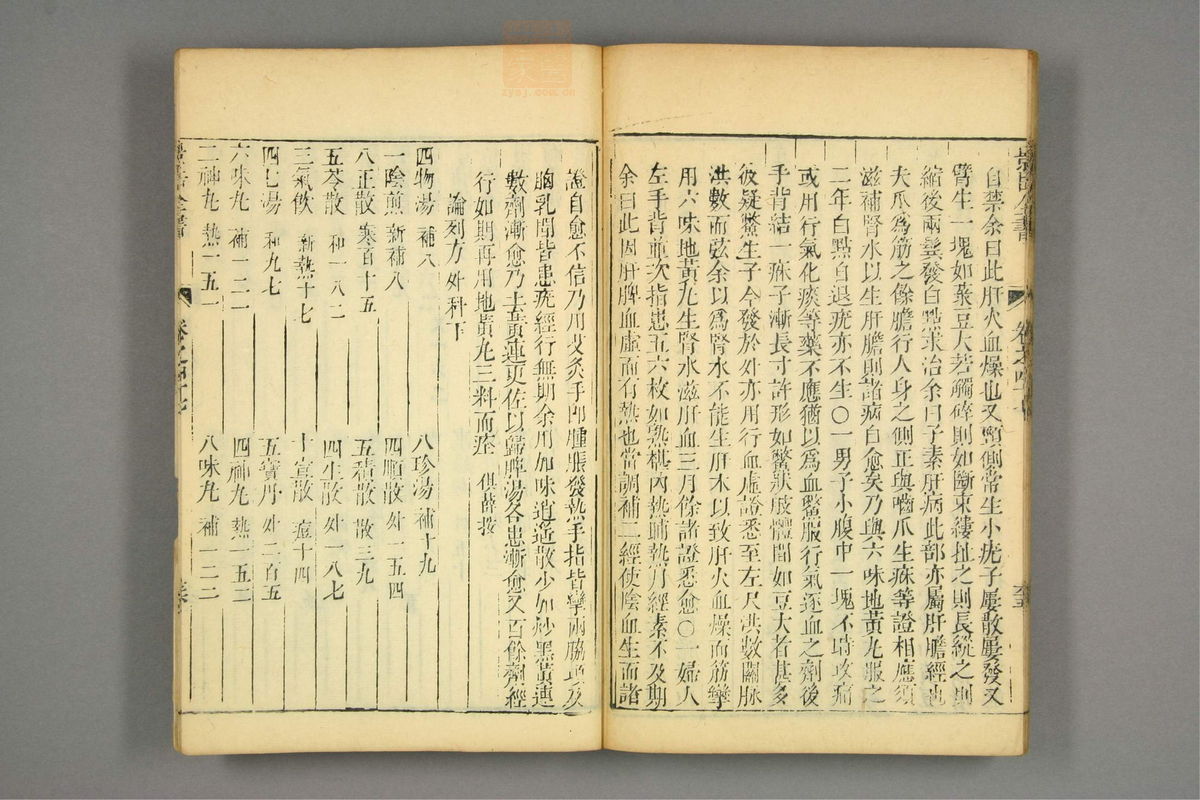 景岳全書
卷之四十七
自禁余曰此肝火血燥也又頸側常生小疣子屢散屢發又
臂生一塊如菉豆大若觸碎則如斷束縷扯之則長縱之則
縮後兩鬢發白點求治余曰子素肝病此部亦屬肝膽經也
夫爪爲筋之餘膽行人身之側正與嚙爪生痳等證相應須
滋補腎水以生肝膽則諸病自愈矣乃與六味地黃丸服之
二年白點自退疣亦不生〇一男子小腹中一塊不時攻痛
或用行氣化痰等藥不應猶以爲血鱉服行氣逐血之劑後
手背結一痳子漸長寸許形如鱉狀肢體間如豆大者甚多
彼疑鱉生子今發於外亦用行血虛證悉至左尺洪數關脉
洪數而弦余以爲腎水不能生肝木以致肝火血燥而筋攣
用六味地黃丸生腎水滋肝血三月餘諸證悉愈〇一婦人
左手背並次指患五六枚如熟椹內熱晡熱月經素不及期
余曰此因肝脾血虛而有熱也當調補二經使陰血生而諸
證自愈不信乃用艾灸手卽腫脹發熱手指皆攣兩脇項及
胸乳間皆患疣經行無期余用加味逍遥散少加炒黑黃連
數劑漸愈乃去黃連更佐以歸脾湯各患漸愈又百餘劑經
行如期再用地黃丸三料而痊 俱薛按
論列方 外科下
四物湯 補八 八珍湯 補十九
一陰煎 新補八 四順散 外一五四
八正散 寒百十五 五積散 散三九
五苓散 和一八二 四生散 外一八七
三氣飲 新熱十七 十宣散 痘十四
四七湯 和九七 五寶丹 外二百五
六味丸 補一二一 四神丸 熱一五二
二神丸 熱一五一 八味丸 補一二二
景岳全書
卷之四十七